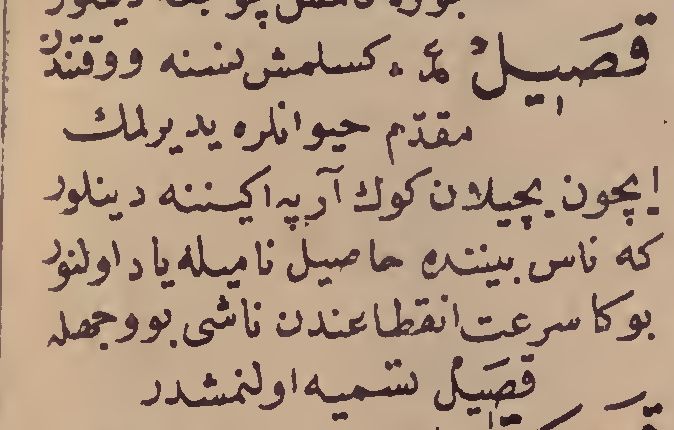 قَصِيلٌ ع م كسلمش نسنه و وقتندن
مقدّم حيوانلره يديرلمك
ايچون بچيلان كوك آرپه اكيننه دينلور
كه ناس بيننده حاصيل ناميله ياد اولنور
بوكا سرعت انقطاعندن ناشى بو وجهله
قَصِيلٌ تسميه اولنمشدر